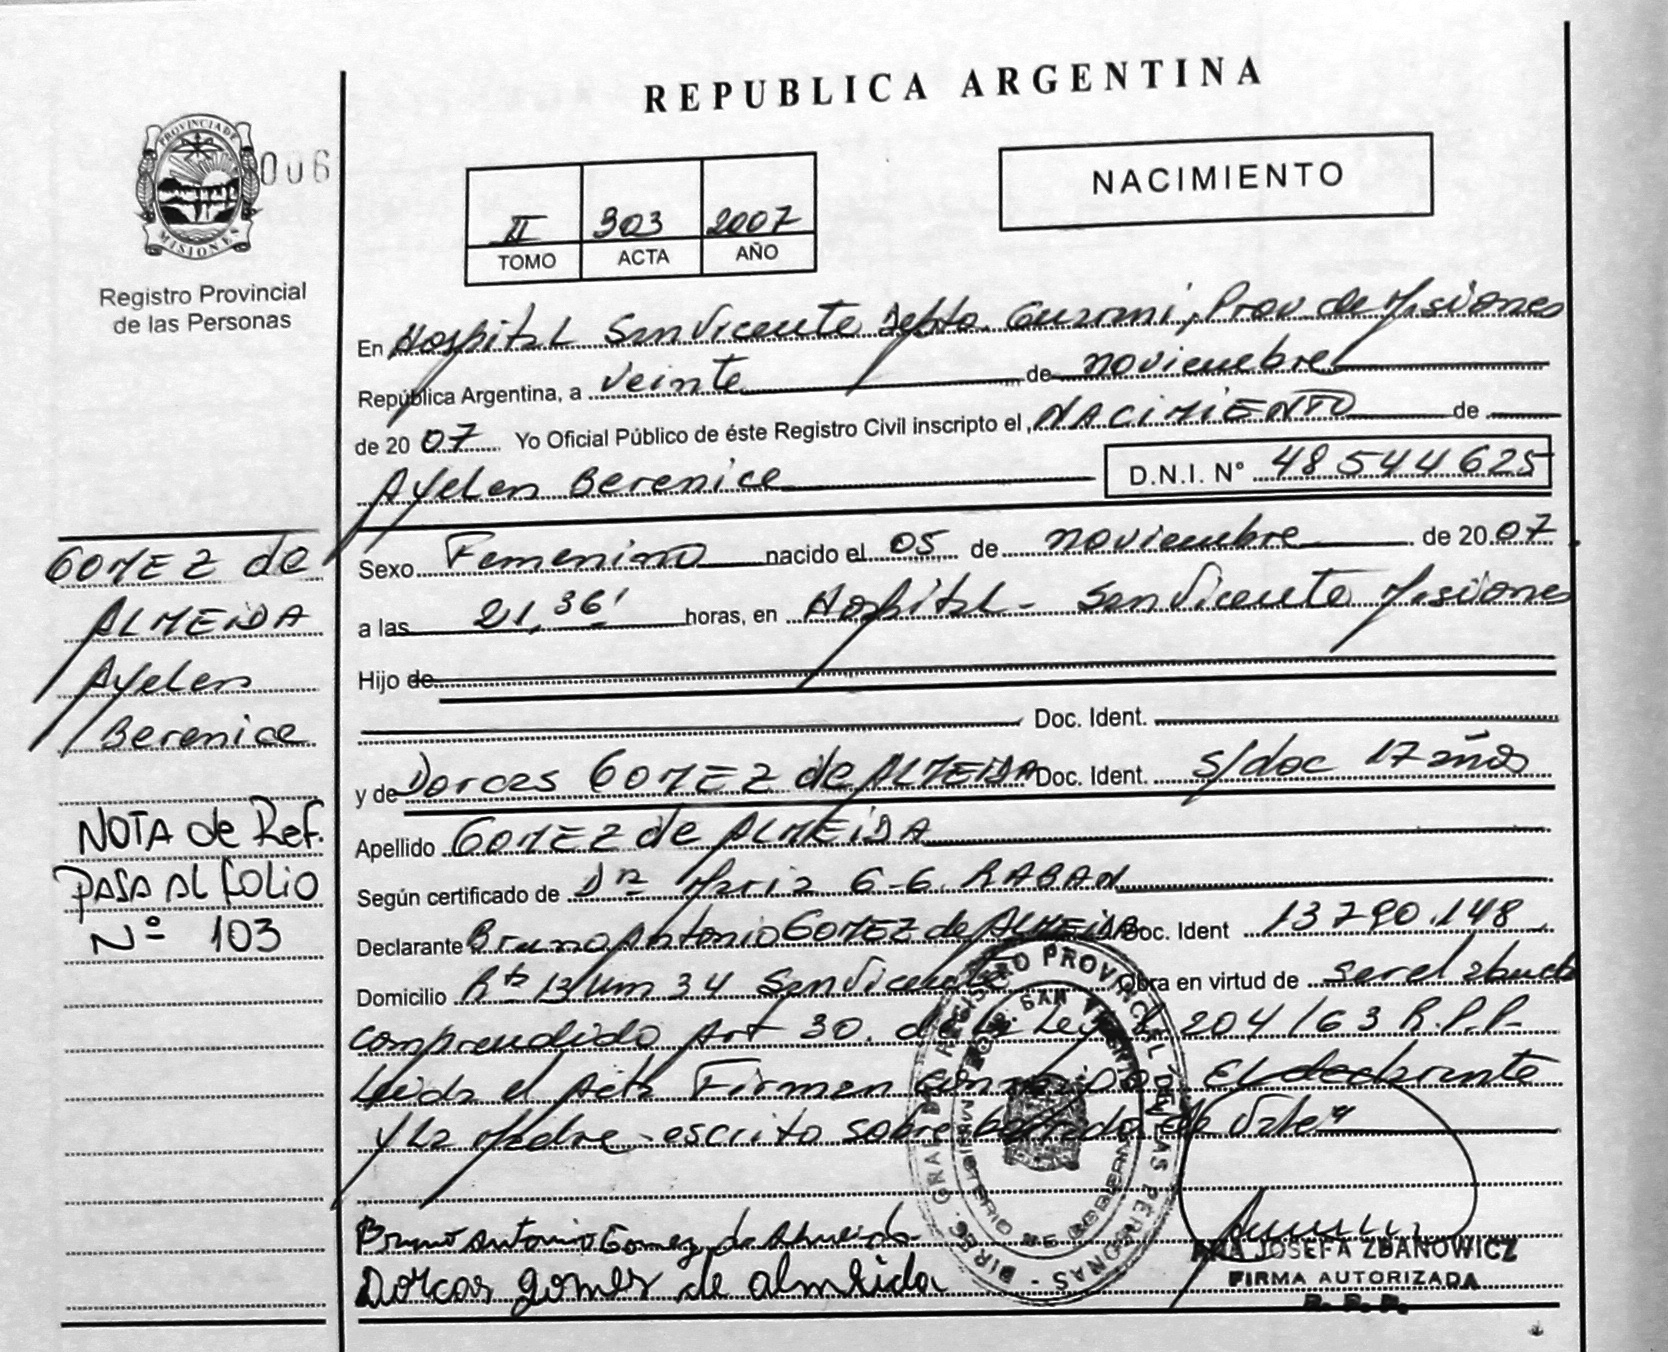 REPUBLICA ARGENTINA
PROVINCIA DE
MISIONES
006
Registro Provincial
de las Personas
II 303 2007
TOMO ACTA AÑO
NACIMIENTO
En Hospital San Vicente Depto. Guarani, Prov de Misiones
República Argentina, a veinte de noviembre
de 2007 Yo Oficial Público de éste Registro Civil inscripto el, NACIMIENTO de
Ayelen Berenice D.N.I. N° 48544625
GOMEZ de
ALMEIDA
Ayelen
Berenice
NOTA de Ref.
PASA AL folio
Nº 103
Sexo Femenino nacido el 05 de noviembre de 2007
a las 21,36' horas, en Hospital - San Vicente Misiones
Hijo de
Doc. Ident.
y de Dorcas GOMEZ de ALMEIDA Doc. Ident. s/doc 17 años
Apellido GOMEZ de ALMEIDA
Según certificado de Dra Maria G-G.
Declarante Bruno Antonio GOMEZ de ALMEIDA Doc. Ident 13790.148
Domicilio Rta 13 Km 34 San Vicente Obra en virtud de ser el abuelo
comprendido Art 30. de la Ley 8204/63 R.P.P.
Leida el Acta Firman conmigo El declarante
y La Madre - escrito sobre borrado de Vale
Bruno Antonio Gomez de Almeida
Dorcas gomes de almeida
REGISTRO PROVINCIAL DE LAS PERSONAS
SAN VICENTE
MINISTERIO DE GOBIERNO
ANA JOSEFA ZBANOWICZ
FIRMA AUTORIZADA
R. P. P.